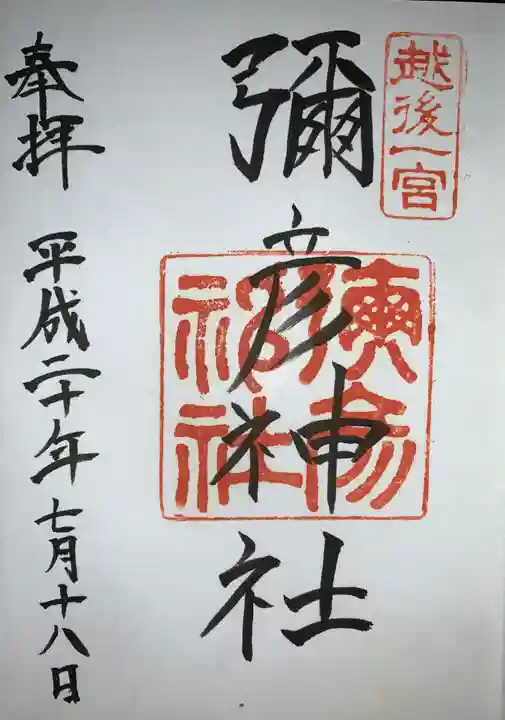 越後一宮
彌彦神社
彌彦
神社
奉拝
平成二十年七月十八日